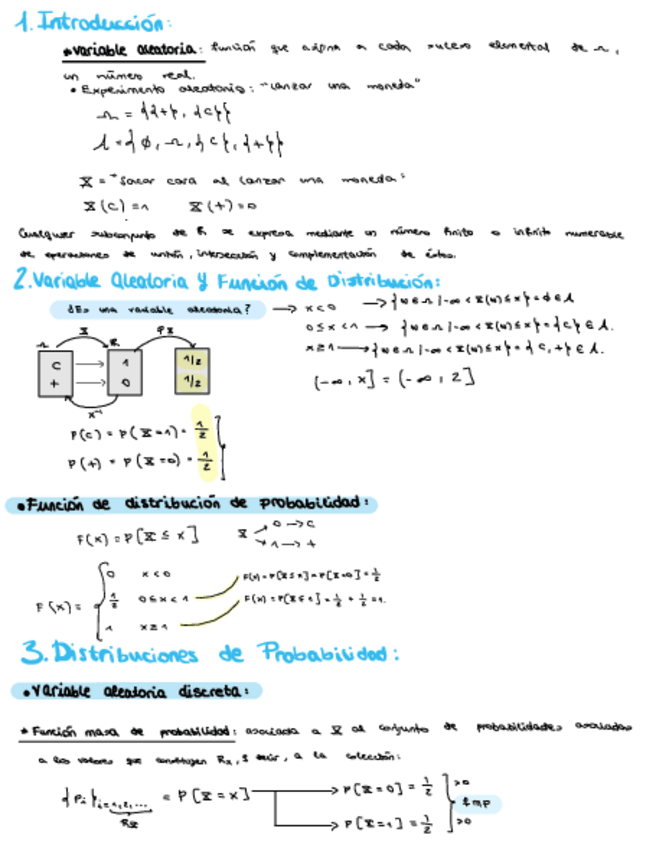 1. Introducción:
• variable aleatoria: función que asigna a cada suceso elemental de Ω,
un número real.
• Experimento aleatorio: "Lanzar una moneda"
Ω = {{+}, {c}}
A = {∅, Ω, {c}, {+}}
X = "Sacar cara al lanzar una moneda"
X(c)=1 X(+)=0
Cualquier subconjunto de R se expresa mediante un número finito o infinito numerable
de operaciones de unión, intersección y complementación de éstos.
2. Variable Aleatoria y Función de Distribución:
¿Es una variable aleatoria? → x<0 → {w∈Ω|-∞<X(w)≤x}=∅∈A
0≤x<1 → {w∈Ω|-∞<X(w)≤x}={c}∈A.
x≥1 → {w∈Ω|-∞<X(w)≤x}={c,+}∈A.
Ω X R PX
C 1 1/2
+ 0 1/2
X⁻¹
(-∞, x] = (-∞, 2]
P(c) = P(X=1) = 1/2
P(+) = P(X=0) = 1/2
• Función de distribución de probabilidad:
F(x) = P[X ≤ x] X 0→c
1→+
F(x) = 0 x<0
1/2 0≤x<1 F(x)=P[X≤x]=P[X=0]=1/2
1 x≥1 F(x)=P[X≤1]=1/2+1/2=1.
3. Distribuciones de Probabilidad:
• Variable aleatoria discreta:
* Función masa de probabilidad: asociada a X al conjunto de probabilidades asociadas
a los valores que constituyen Rx, es decir, a la colección:
{Pi}i=1,2,... = P[X=x] → P[X=0] = 1/2 >0
Rx fmp
→ P[X=1] = 1/2 >0